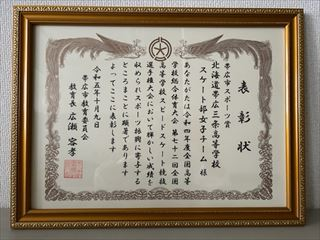 表彰状
帯広市スポーツ賞
北海道帯広三条高等学校
スケート部女子チーム 様
あなたがたは令和四年度全国高等
学校総合体育大会第七十二回全国
高等学校スピードスケート競技
選手権大会において輝かしい成績を
収められスポーツ振興に寄与する
ところまことに顕著であります
よってここに表彰します
令和五年十月九日
帯広市教育委員会
教育長 広瀬容孝